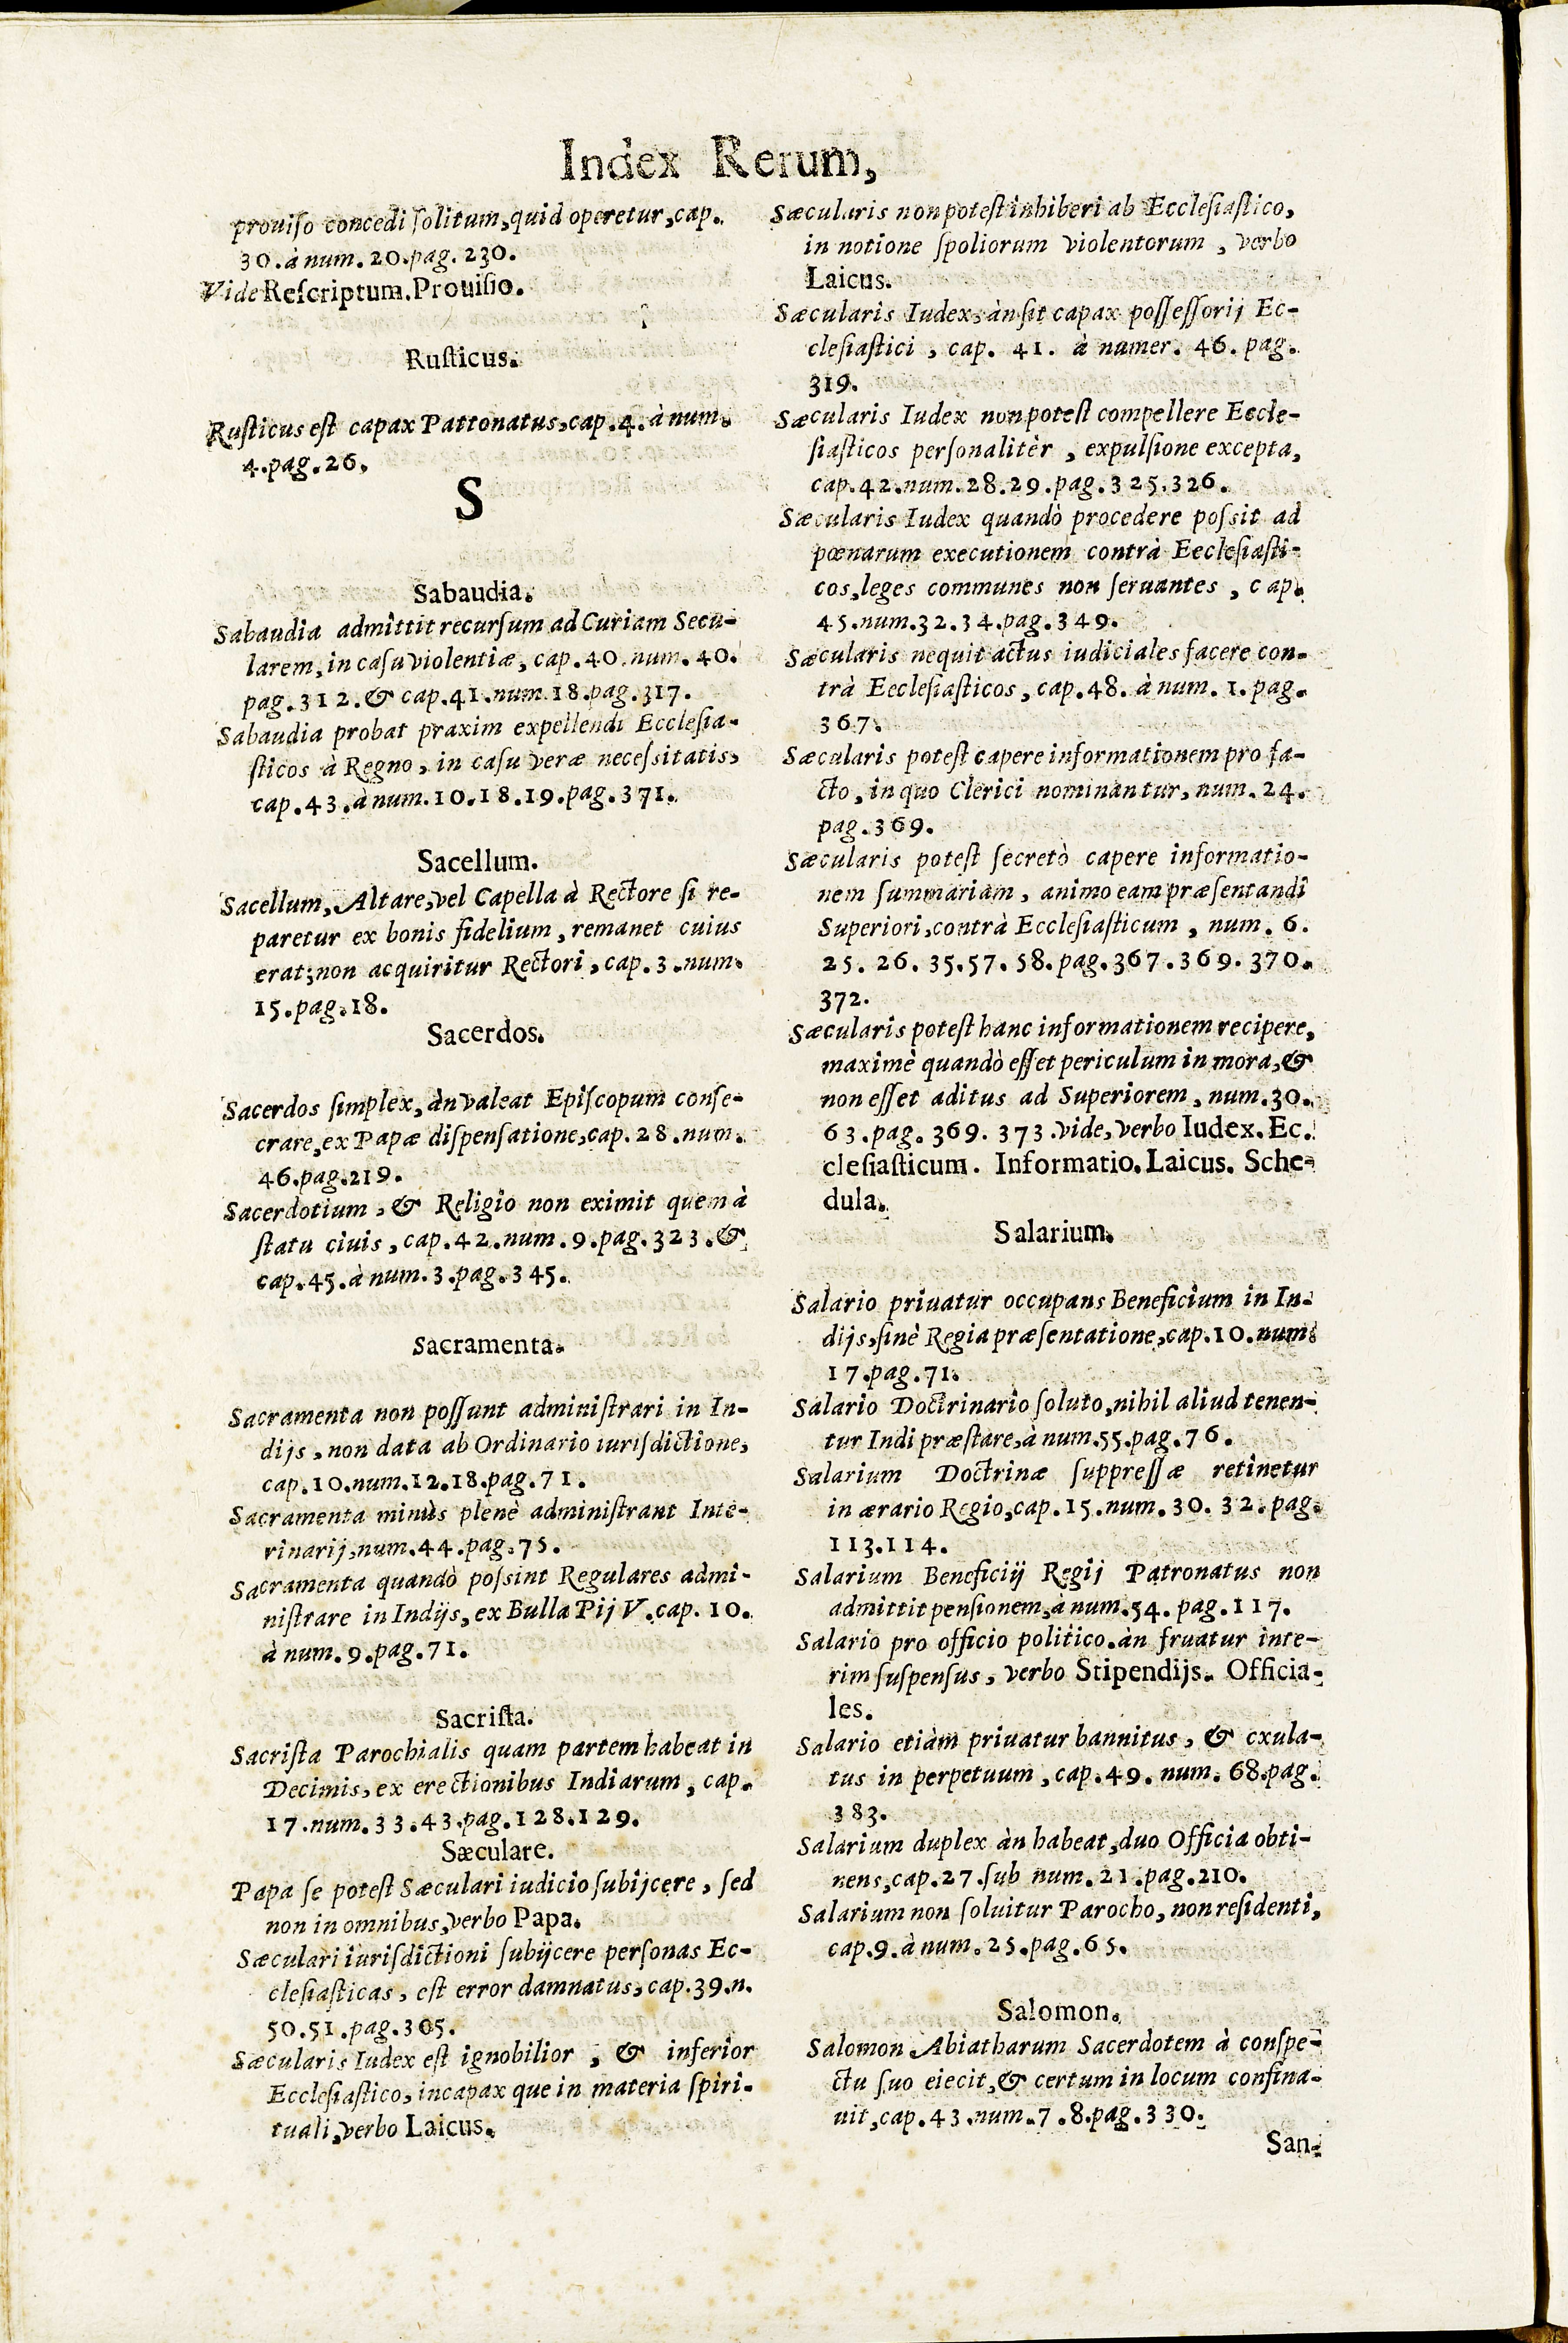 Index Rerum,
prouiſo concedi ſolitum, quid operetur, cap.
30. à num. 20. pag. 230.
Vide Reſcriptum. Prouiſio.
Ruſticus.
Ruſticus eſt capax Pattonatus, cap. 4. à num.
4. pag. 26.
S
Sabaudia.
Sabaudia admittit recurſum ad Curiam Secu-
larem, in caſu violentiæ, cap. 40. num. 40.
pag. 312. & cap. 41. num. 18. pag. 317.
Sabaudia probat praxim expellendi Eccleſia-
ſticos à Regno, in caſu veræ neceſsitatis,
cap. 43. à num. 10. 18. 19. pag. 371.
Sacellum.
Sacellum, Altare, vel Capella à Rectore ſi re-
paretur ex bonis fidelium, remanet cuius
erat; non acquiritur Rectori, cap. 3. num.
15. pag. 18.
Sacerdos.
Sacerdos ſimplex, àn valeat Epiſcopum conſe-
crare, ex Papæ diſpenſatione, cap. 28. num.
46. pag. 219.
Sacerdotium, & Religio non eximit quem à
ſtatu ciuis, cap. 42. num. 9. pag. 323. &
cap. 45. à num. 3. pag. 345.
Sacramenta.
Sacramenta non poſſunt adminiſtrari in In-
dijs, non data ab Ordinario iuriſdictione,
cap. 10. num. 12. 18. pag. 71.
Sacramenta minùs plenè adminiſtrant Inte-
rinarij, num. 44. pag. 75.
Sacramenta quandò poſsint Regulares admi-
niſtrare in Indijs, ex Bulla Pij V. cap. 10.
à num. 9. pag. 71.
Sacriſta.
Sacriſta Parochialis quam partem habeat in
Decimis, ex erectionibus Indiarum, cap.
17. num. 33. 43. pag. 128. 129.
Sæculare.
Papa ſe poteſt Sæculari iudicio ſubijcere, ſed
non in omnibus, verbo Papa.
Sæculari iuriſdictioni ſubijcere perſonas Ec-
cleſiaſticas, eſt error damnatus, cap. 39. n.
50. 51. pag. 305.
Sæcularis Iudex eſt ignobilior, & inferior
Eccleſiaſtico, incapax que in materia ſpiri-
tuali, verbo Laicus.
Sæcularis non poteſt inhiberi ab Eccleſiaſtico,
in notione ſpoliorum violentorum, verbo
Laicus.
Sæcularis Iudex, àn ſit capax poſſeſſorij Ec-
cleſiaſtici, cap. 41. à numer. 46. pag.
319.
Sæcularis Iudex non poteſt compellere Eccle-
ſiaſticos perſonalitèr, expulſione excepta,
cap. 42. num. 28. 29. pag. 325. 326.
Sæcularis Iudex quandò procedere poſsit ad
pœnarum executionem contrà Eccleſiaſti-
cos, leges communes non ſeruantes, cap.
45. num. 32. 34. pag. 349.
Sæcularis nequit actus iudiciales facere con-
trà Eccleſiaſticos, cap. 48. à num. 1. pag.
367.
Sæcularis poteſt capere informationem pro fa-
cto, in quo Clerici nominantur, num. 24.
pag. 369.
Sæcularis poteſt ſecretò capere informatio-
nem ſummariam, animo eam præſentandi
Superiori, contrà Eccleſiaſticum, num. 6.
25. 26. 35. 57. 58. pag. 367. 369. 370.
372.
Sæcularis poteſt hanc informationem recipere,
maximè quandò eſſet periculum in mora, &
non eſſet aditus ad Superiorem, num. 30.
63. pag. 369. 373. vide, verbo Iudex. Ec.
cleſiaſticum. Informatio. Laicus. Sche-
dula.
Salarium.
Salario priuatur occupans Beneficium in In-
dijs, ſinè Regia præſentatione, cap. 10. num.
17. pag. 71.
Salario Doctrinario ſoluto, nihil aliud tenen-
tur Indi præſtare, à num. 55. pag. 76.
Salarium Doctrinæ ſuppreſſæ retinetur
in ærario Regio, cap. 15. num. 30. 32. pag.
113. 114.
Salarium Beneficiij Regij Patronatus non
admittit penſionem, à num. 54. pag. 117.
Salario pro officio politico. àn fruatur inte-
rim ſuſpenſus, verbo Stipendijs. Officia-
les.
Salario etiàm priuatur bannitus, & cxula-
tus in perpetuum, cap. 49. num. 68. pag.
383.
Salarium duplex àn habeat, duo Officia obti-
nens, cap. 27. ſub num. 21. pag. 210.
Salarium non ſoluitur Parocho, non reſidenti,
cap. 9. à num. 25. pag. 65.
Salomon.
Salomon Abiatharum Sacerdotem à conſpe-
ctu ſuo eiecit, & certum in locum confina-
uit, cap. 43. num. 7. 8. pag. 330.
San-